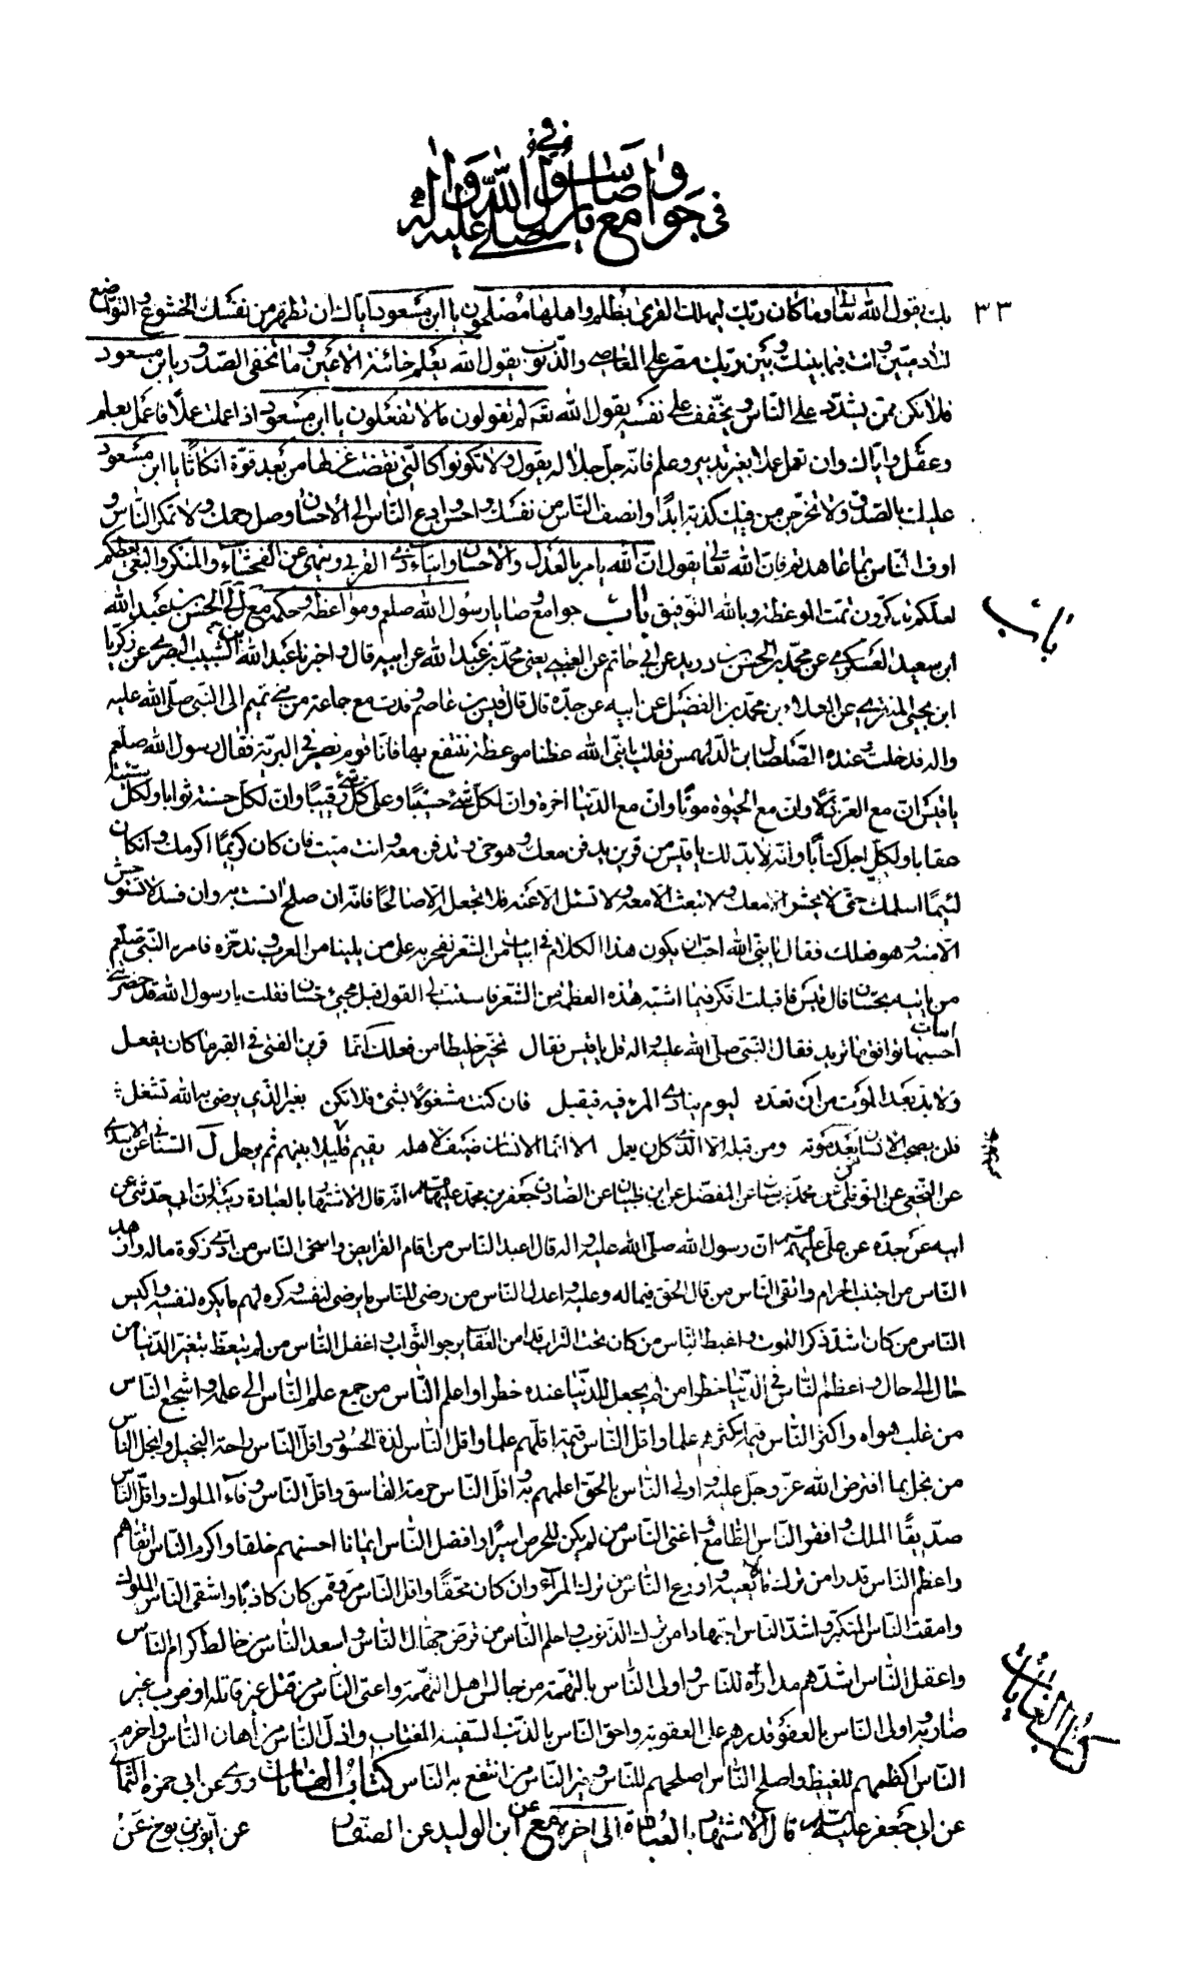 في جوامع وصايا رسول الله صلى الله عليه واله
٣٣
بك يقول الله تعالى وما كان ربك ليهلك القرى بظلم واهلها مصلحون يا ابن مسعود اياك ان تظهر من نفسك الخشوع والتواضع
للادميين وانت فيما بينك وبين ربك مصر على المعاصي والذنوب يقول الله يعلم خائنة الاعين وما تخفى الصدور يا بن مسعود
فلا تكن ممن يشدد على الناس ويخفف على نفسه يقول الله تعالى لم تقولون ما لا تفعلون يا ابن مسعود اذا عملت عملا فاعمل بعلم
وعقل واياك وان تعمل عملا بغير تدبير وعلم فانه جل جلاله يقول ولا تكونوا كالتي نقضت غزلها من بعد قوة انكاثا يا ابن مسعود
عليك بالصدق ولا تخرجن من فيك كذبة ابدا وانصف الناس من نفسك واحسن وادع الناس الى الاحسان وصل رحمك ولا تمكر الناس و
اوف الناس بما عاهدتهم فان الله تعالى يقول ان الله يامر بالعدل والاحسان وايتاء ذي القربى وينهى عن الفحشاء والمنكر والبغي يعظكم
لعلكم تذكرون تمت الموعظة وبالله التوفيق باب جوامع وصايا رسول الله صلعم ومواعظه وحكمه مع ل الحسن بن عبد الله
باب
ابن سعيد العسكري عن محمد بن الحسن بن دريد عن ابي حاتم عن العتبي يعني محمد بن عبد الله عن ابيه قال واخبرنا عبد الله بن شبيب البصري عن زكريا
ابن يحيى المنقري عن العلاء بن محمد بن الفضيل عن ابيه عن جده قال قال قيس بن عاصم وفدت مع جماعة من بني تميم الى النبي صلى الله عليه
واله فدخلت وعنده الصلصال بن الدلهمس فقلت يا نبي الله عظنا موعظة ننتفع بها فانا قوم نصير في البرية فقال رسول الله صلعم
يا قيس ان مع العز ذلا وان مع الحيوة موتا وان مع الدنيا اخرة وان لكل شيء حسيبا وعلى كل شيء رقيبا وان لكل حسنة ثوابا ولكل سيئة
عقابا ولكل اجل كتابا وانه لا بد لك يا قيس من قرين يدفن معك وهو حي وتدفن معه وانت ميت فان كان كريما اكرمك وان كان
لئيما اسلمك ثم لا يحشر الا معك ولا تبعث الا معه ولا تسئل الا عنه فلا تجعله الا صالحا فانه ان صلح انست به وان فسد لا تستوحش
الا منه وهو فعلك فقال يا نبي الله احب ان يكون هذا الكلام في ابيات من الشعر نفخر به على من يلينا من العرب وندخره فامر النبي صلعم
من ياتيه بحسان قال قيس فاقبلت افكر فيما اشبه هذه العظة من الشعر فاستتب لي القول قبل مجيء حسان فقلت يا رسول الله قد حضرتني
ابيات
احسبها توافق ما تريد فقال النبي صلى الله عليه واله قل يا قيس فقال تخير خليطا من فعلك انما قرين الفتى في القبر ما كان يفعل
ولا بد بعد الموت من ان تعده ليوم ينادى المرء فيه فيقبل فان كنت مشغولا بشيء فلا تكن بغير الذي يرضى به الله تشغل
فلن يصحب الانسان بعد موته ومن قبله الا الذي كان يعمل الا انما الانسان ضيف لاهله يقيم قليلا بينهم ثم يرحل ل السناني عن الاسدي
عن النخعي عن النوفلي عن محمد بن سنان عن المفضل عن ابن ظبيان عن الصادق جعفر بن محمد عليهما السلام انه قال الاشتهار بالعبادة ريبة ان ابي حدثني عن
ابيه عن جده عن علي عليهم السلام ان رسول الله صلى الله عليه واله قال اعبد الناس من اقام الفرايض واسخى الناس من ادى زكوة ماله وازهد
الناس من اجتنب الحرام واتقى الناس من قال الحق فيما له وعليه واعدل الناس من رضى للناس ما يرضى لنفسه وكره لهم ما يكره لنفسه واكيس
الناس من كان اشد ذكرا للموت واغبط الناس من كان تحت التراب قد امن العقاب يرجو الثواب واغفل الناس من لم يتعظ بتغير الدنيا من
حال الى حال واعظم الناس في الدنيا خطرا من لم يجعل للدنيا عنده خطرا واعلم الناس من جمع علم الناس الى علمه واشجع الناس
من غلب هواه واكثر الناس قيمة اكثرهم علما واقل الناس قيمة اقلهم علما واقل الناس لذة الحسود واقل الناس راحة البخيل وابخل الناس
من بخل بما افترض الله عز وجل عليه واولى الناس بالحق اعلمهم به واقل الناس حرمة الفاسق واقل الناس وفاء الملوك واقل الناس
صديقا الملك وافقر الناس الطامع واغنى الناس من لم يكن للحرص اسيرا وافضل الناس ايمانا احسنهم خلقا واكرم الناس اتقاهم
واعظم الناس قدرا من ترك ما لا يعنيه واورع الناس من ترك المراء وان كان محقا واقل الناس مروة من كان كاذبا واشقى الناس الملوك
وامقت الناس المتكبر واشد الناس اجتهادا من ترك الذنوب واحلم الناس من فر من جهال الناس واسعد الناس من خالط كرام الناس
واعقل الناس اشدهم مداراة للناس واولى الناس بالتهمة من جالس اهل التهمة واعتى الناس من قتل غير قاتله او ضرب غير
ضاربه واولى الناس بالعفو اقدرهم على العقوبة واحق الناس بالذنب السفيه المغتاب واذل الناس من اهان الناس واحزم
الناس اكظمهم للغيظ واصلح الناس اصلحهم للناس وخير الناس من انتفع به الناس كتاب الغايات روي عن ابي حمزة الثمالي
كتاب الغايات
عن ابي جعفر عليه السلام قال الاشتهار بالعبادة الى اخره مع عن ابن الوليد عن الصفار عن ايوب بن نوح عن